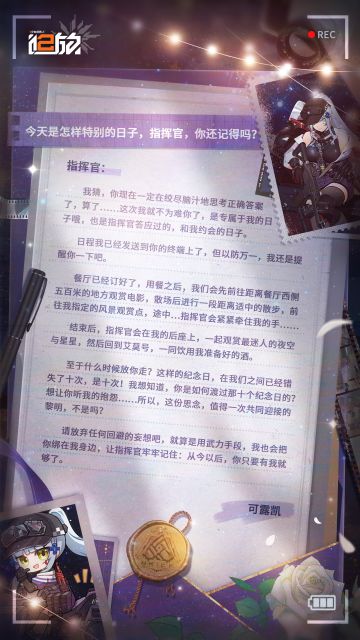 REC
今天是怎样特别的日子，指挥官，你还记得吗？
指挥官：
我猜，你现在一定在绞尽脑汁地思考正确答案
了，算了……这次我就不为难你了，是专属于我的日
子哦，也是指挥官答应过的，和我约会的日子。
日程我已经发送到你的终端上了，但以防万一，我还是提
醒你一下吧。
餐厅已经订好了，用餐之后，我们会先前往距离餐厅西侧
五百米的地方观赏电影，散场后进行一段距离适中的散步，前
往我指定的风景观赏点，途中…指挥官会紧紧牵住我的手……
结束后，指挥官会在我的后座上，一起观赏最迷人的夜空
与星星，然后回到艾莫号，一同饮用我准备好的酒。
至于什么时候放你走？这样的纪念日，在我们之间已经错
失了十次，是十次！我想知道，你是如何渡过那十个纪念日的？
想让你听我的抱怨……所以，这份思念，值得一次共同迎接的
黎明，不是吗？
请放弃任何回避的妄想吧，就算是用武力手段，我也会把
你绑在我身边，让指挥官牢牢记住：从今以后，你只要有我就
够了。
可露凯